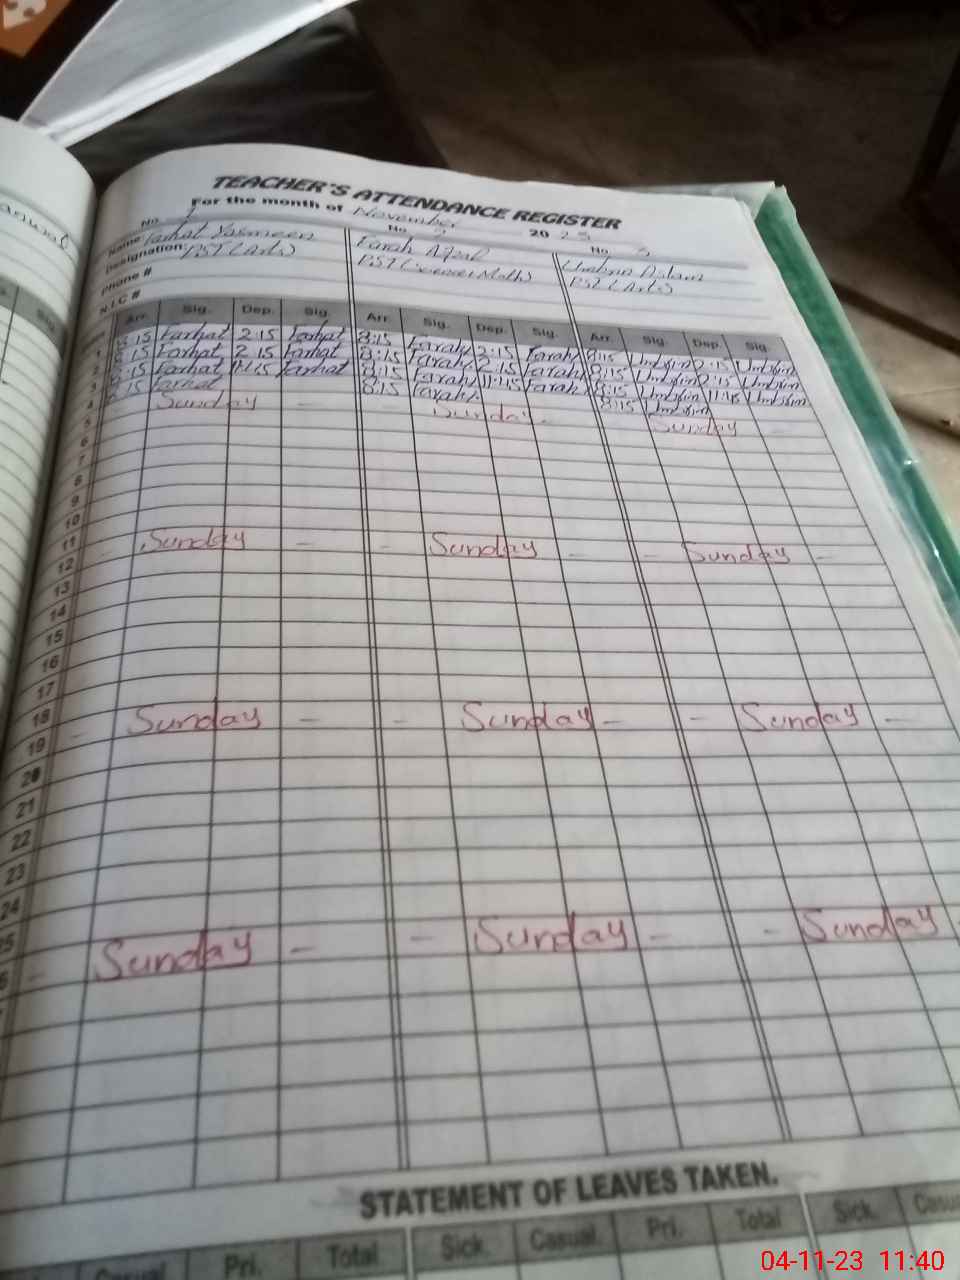 TEACHER'S ATTENDANCE REGISTER
For the month of November 2023
No. 1 No. 2 No. 3
Name Farhat Yasmeen Farah Afzal Umbrin Aslam
Designation: PST (Arts) PST (Science Math) PST (Arts)
Phone #
N.I.C #
Arr. Sig. Dep. Sig. Arr. Sig. Dep. Sig. Arr. Sig. Dep. Sig.
1 8:15 Farhat 2:15 Farhat 8:15 Farah 2:15 Farah 8:15 Umbrin 2:15 Umbrin
2 8:15 Farhat 2:15 Farhat 8:15 Farah 2:15 Farah 8:15 Umbrin 2:15 Umbrin
3 8:15 Farhat 11:45 Farhat 8:15 Farah 11:45 Farah 8:15 Umbrin 11:45 Umbrin
4 8:15 Farhat 8:15 Farah 8:15 Umbrin
5 Sunday - Sunday - Sunday -
6
7
8
9
10
11
12 - Sunday - - Sunday - - Sunday -
13
14
15
16
17
18
19 - Sunday - - Sunday - - Sunday -
20
21
22
23
24
25
26 - Sunday - - Sunday - - Sunday -
STATEMENT OF LEAVES TAKEN.
Casual Pri. Total Sick. Casual. Pri. Total Sick. Casual
04-11-23 11:40